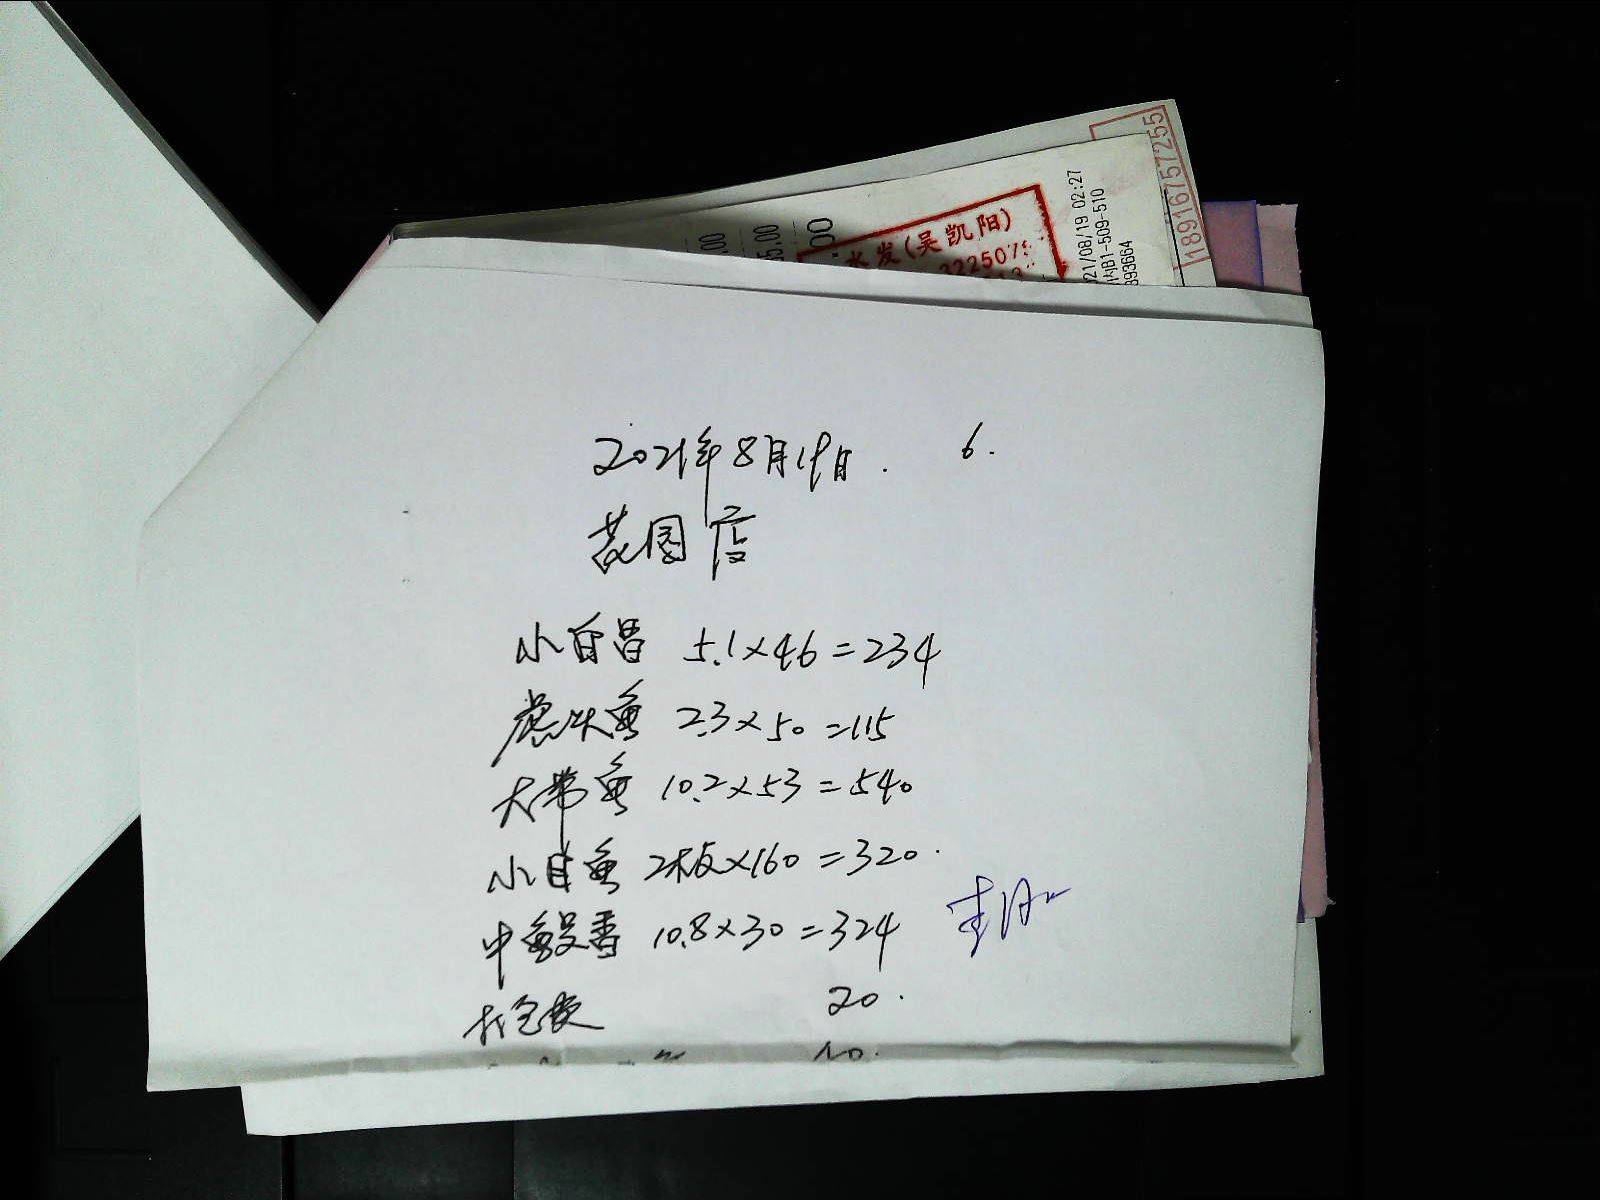 18916757255
21/08/19 02:27
内B1-509-510
393664
水发(吴凯阳)
322507
.00
5.00
.00
2021年8月19日. 6.
花园店
小白昌 5.1×46=234
虎头鱼 2.3×50=115
大带鱼 10.2×53=540
小目鱼 2板×160=320.
中鳗香 10.8×30=324
打包费 20.